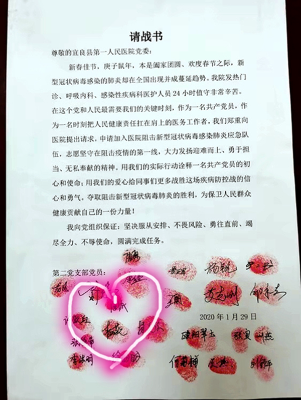 请战书
尊敬的宜良县第一人民医院党委：
新春佳节，庚子鼠年，本是阖家团圆、欢度春节之际，新
型冠状病毒感染的肺炎却在全国出现并成蔓延趋势。我院发热门
诊、呼吸内科、感染性疾病科医护人员 24 小时值守非常辛苦。
在这个党和人民最需要我们的关键时刻，作为一名共产党员，作
为一名时刻把人民健康责任扛在肩上的医务工作者，我们郑重向
医院提出请求，申请加入医院阻击新型冠状病毒感染肺炎应急队
伍，志愿坚守在阻击疫情的第一线，大力发扬迎难而上、勇于担
当、无私奉献的精神，用我们的实际行动诠释一名共产党员的初
心和使命；用我们的爱心给同事们更多战胜这场疾病防控战的信
心和勇气，夺取阻击新型冠状病毒肺炎的胜利，为保卫人民群众
健康贡献自己的一份力量！
我向党组织保证：坚决服从安排、不畏风险、勇往直前、竭
尽全力、不辱使命，圆满完成任务。
第二党支部党员：
2020 年 1 月 29 日